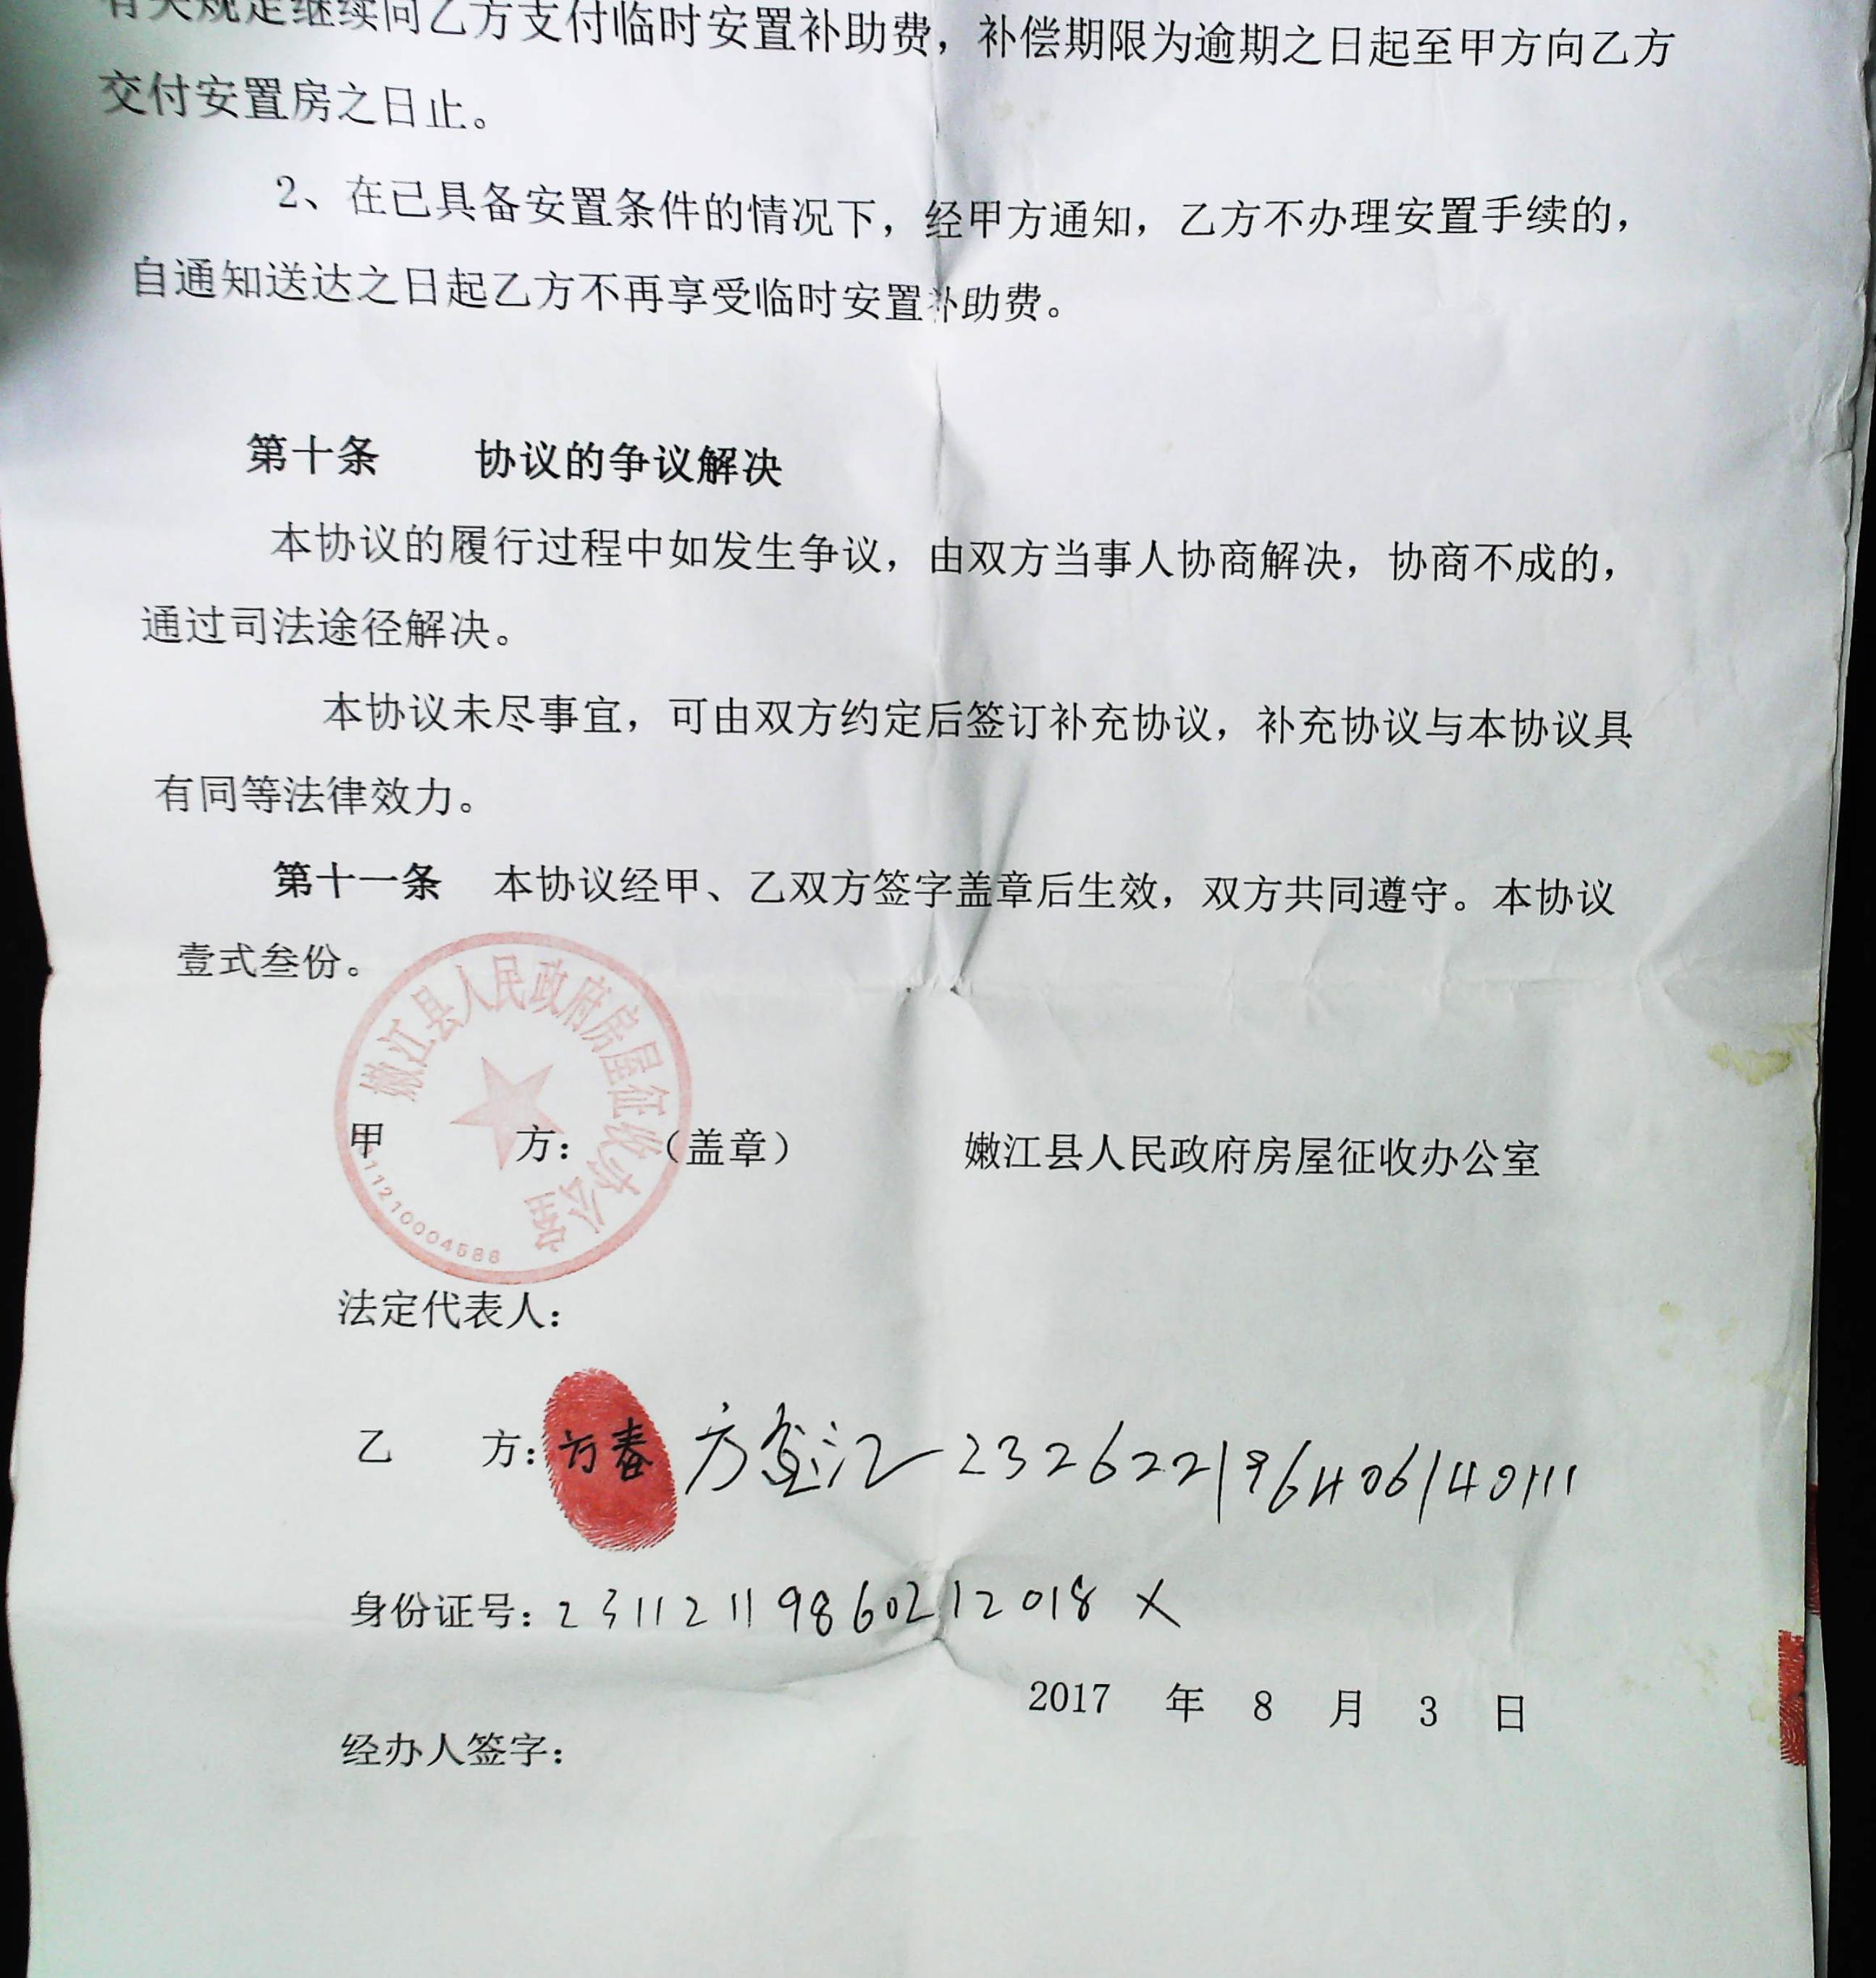 有关规定继续向乙方支付临时安置补助费，补偿期限为逾期之日起至甲方向乙方
交付安置房之日止。
2、在已具备安置条件的情况下，经甲方通知，乙方不办理安置手续的，
自通知送达之日起乙方不再享受临时安置补助费。
第十条 协议的争议解决
本协议的履行过程中如发生争议，由双方当事人协商解决，协商不成的，
通过司法途径解决。
本协议未尽事宜，可由双方约定后签订补充协议，补充协议与本协议具
有同等法律效力。
第十一条 本协议经甲、乙双方签字盖章后生效，双方共同遵守。本协议
壹式叁份。
嫩江县人民政府房屋征收办公室
甲 方： （盖章） 嫩江县人民政府房屋征收办公室
法定代表人：
乙 方：方春 方 232622196406140111
身份证号：23112119860212018X
2017 年 8 月 3 日
经办人签字：